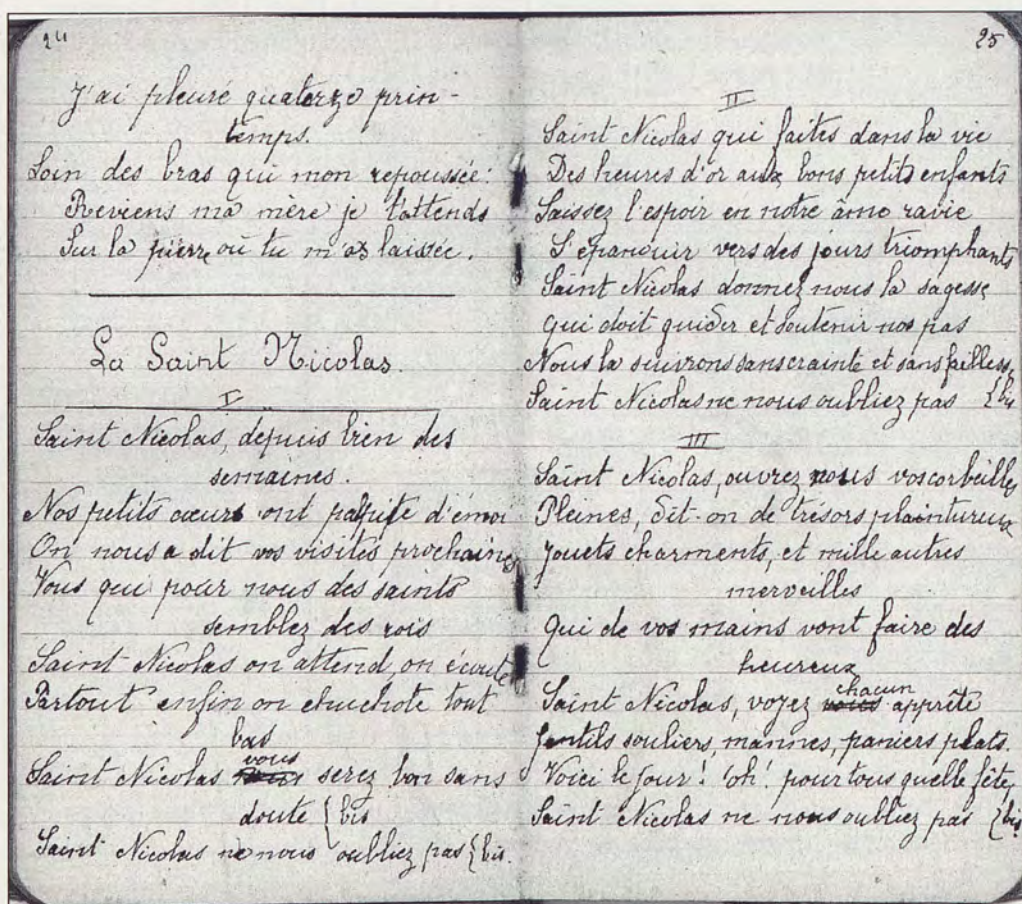 24
J'ai pleuré quatorze prin-
temps.
Loin des bras qui mon repoussée:
Reviens ma mère je t'attends
Sur la pierre où tu m'as laissée.
La Saint Nicolas.
I
Saint Nicolas, depuis bien des
semaines.
Nos petits cœurs ont palpite d'émoi
On nous a dit vos visites prochaines
Vous qui pour nous des saints
semblez des rois
Saint Nicolas on attend, on écoute
Partout enfin on chuchote tout
bas
vous
Saint Nicolas serez bon sans
doute { bis
Saint Nicolas ne nous oubliez pas { bis.
25
II
Saint Nicolas qui faites dans la vie
Des heures d'or aux bons petits enfants
Laissez l'espoir en notre âme ravie
S'épanouir vers des jours triomphants
Saint Nicolas donnez nous la sagesse
Qui doit guider et soutenir nos pas
Nous la suivrons sans crainte et sans
Saint Nicolas ne nous oubliez pas { bis
III
Saint Nicolas, ouvrez nous vos corbeilles
Pleines, dit-on de trésors plaintureux
Jouets charments, et mille autres
merveilles
Qui de vos mains vont faire des
heureux
chacun
Saint Nicolas, voyez apprête
Gentils souliers, mannes, paniers plats.
Voici le jour! oh! pour tous quelle fête,
Saint Nicolas ne nous oubliez pas { bis